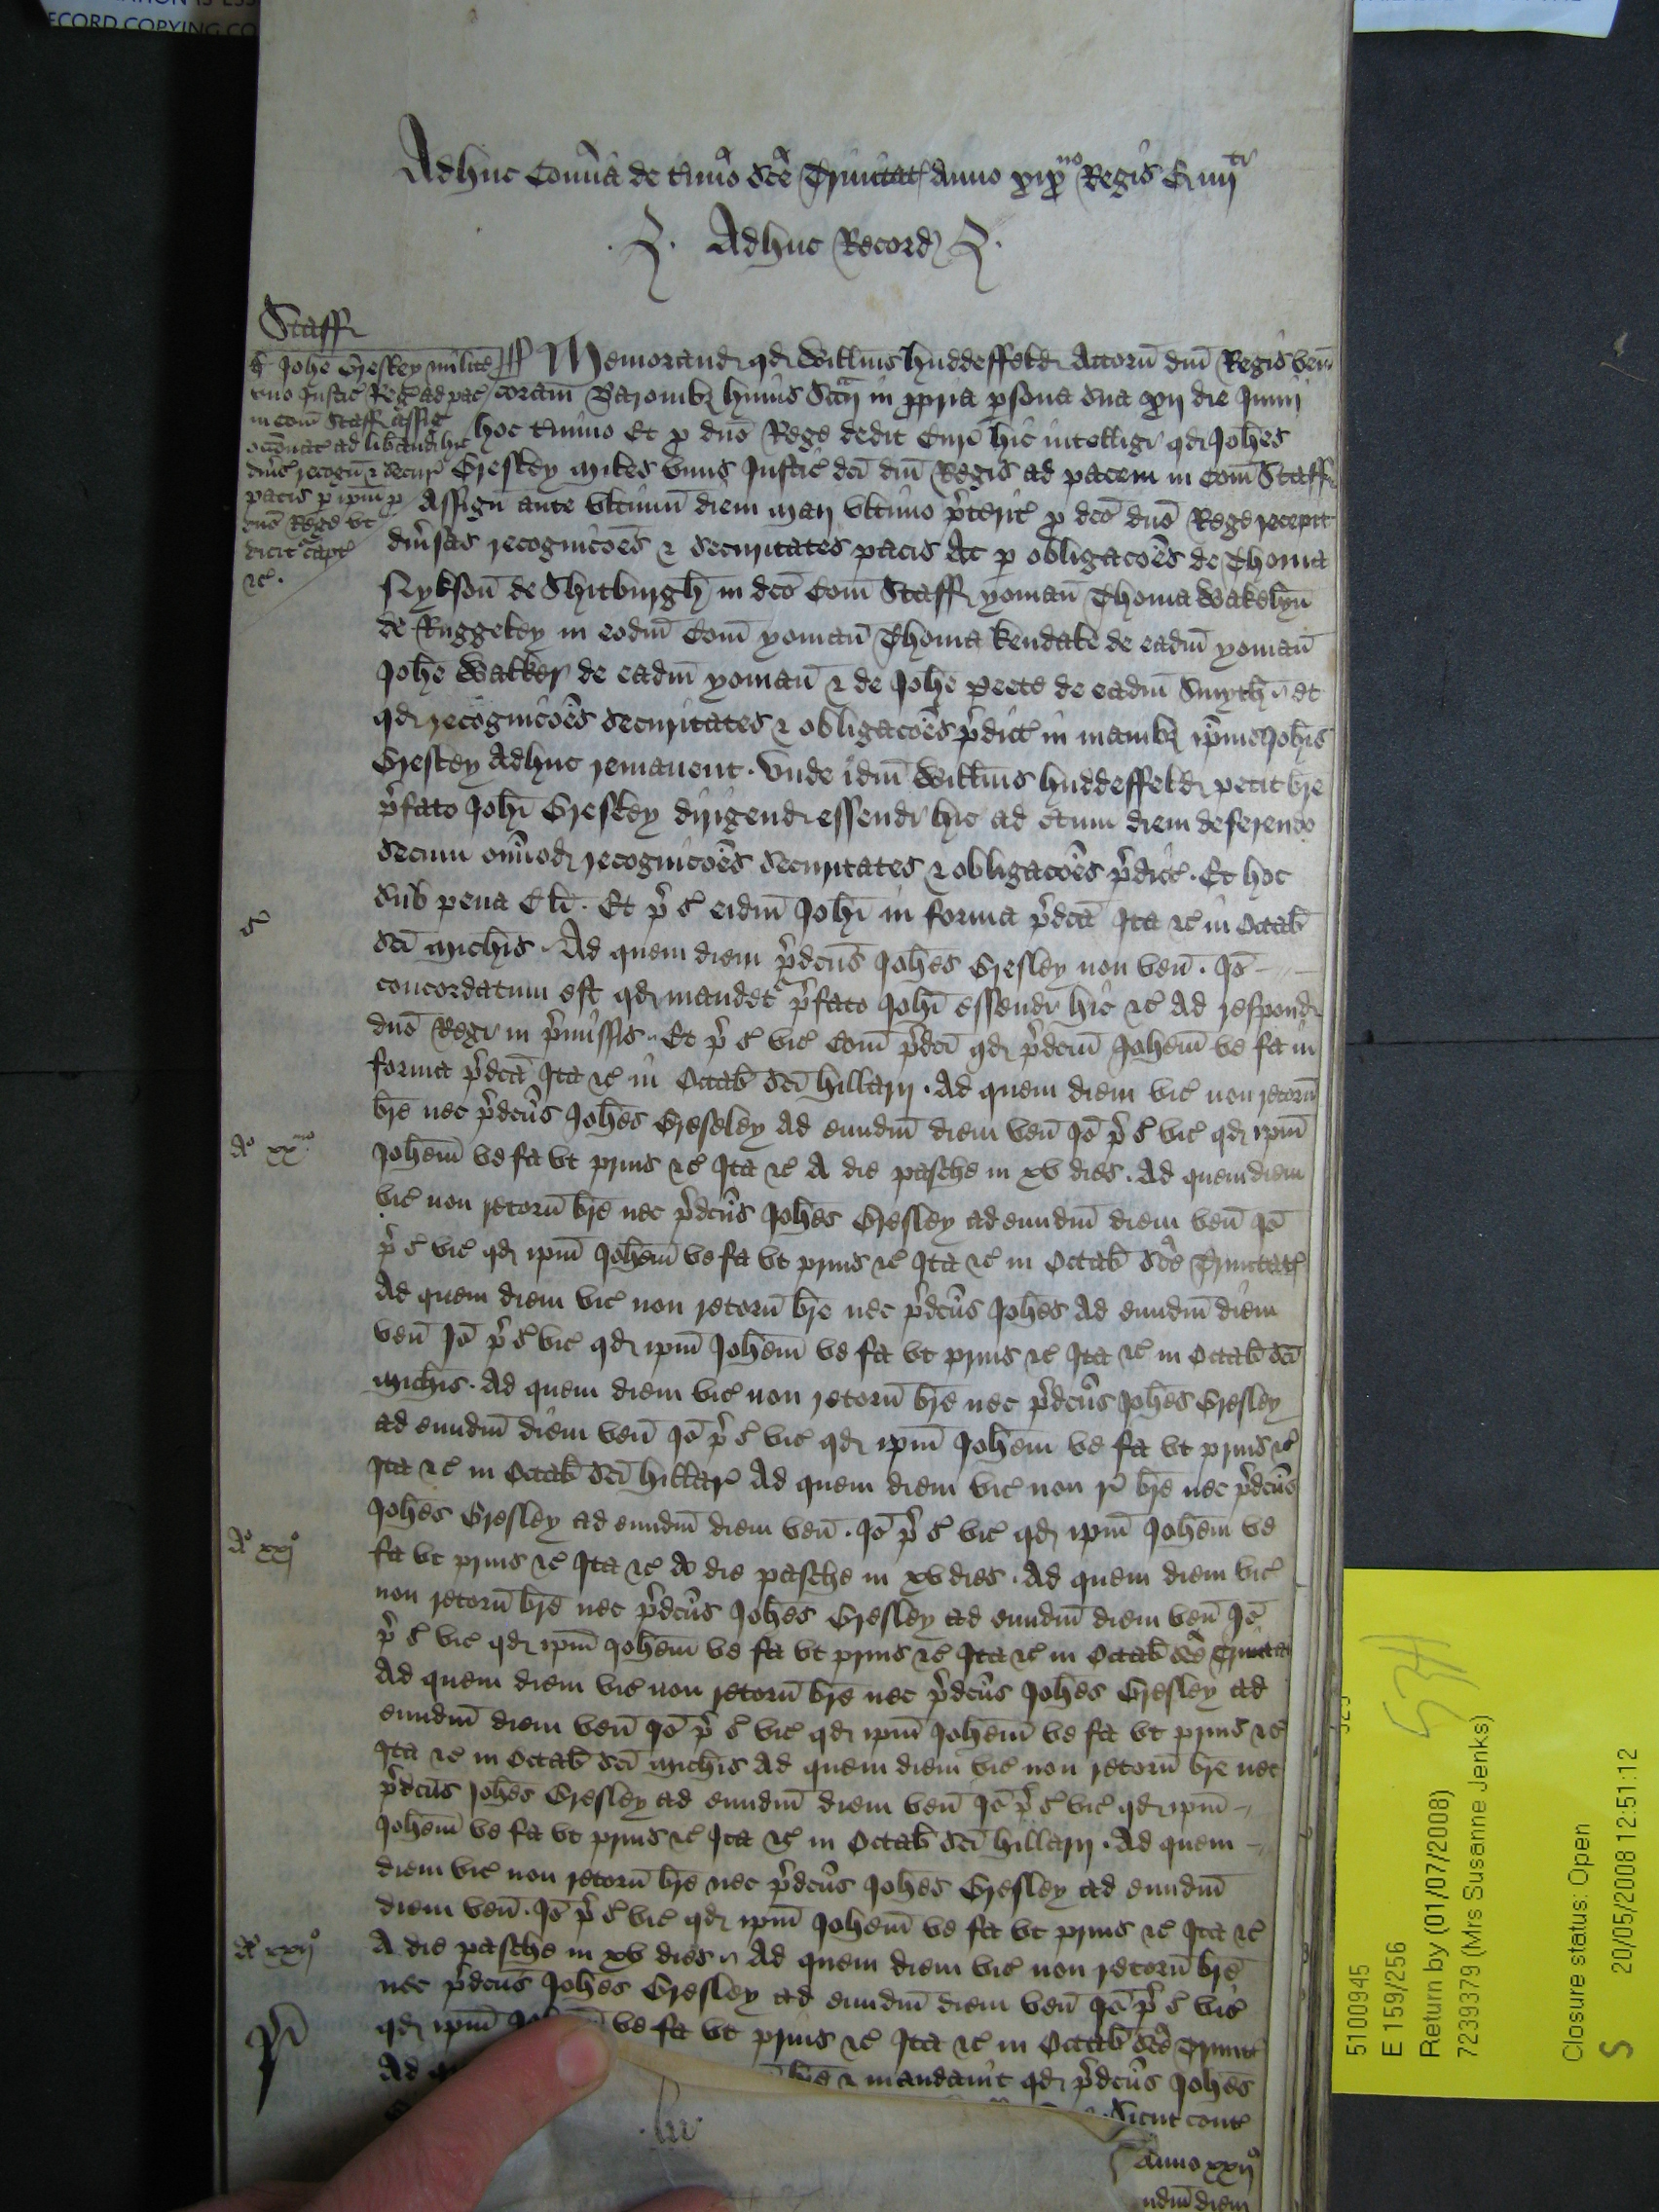 ECORD COPYING CO
Adhuc Com̄ia de t'mio sc̄e Trinitat' anno xix no Regis E iiij ti
Adhuc Record'
Staff'
Johē Gresley milite
vno Justic' Reg' ad pac'
in com' Staff' assig'
ad liband' hic
diu's' recogn' & secur'
pacis p ipm p
dno Rege vt
dicit' capt'
&c.
Memorand' qd' Willms huddeffeld' Attorn' dni Regis ven'
coram Baronibz huius Scc'ij in ppria psona sua xij die Junij
hoc t'mino Et p dno Rege dedit Cur' hic intelligi qd' Johes
Gresley miles vnus Justic' dci dni Regis ad pacem in Com' Staff'
Assign' ante vltimu' diem maij vltimo p'terit' p dco dno Rege recepit
diu'sas recognicoes & securitates pacis Ac p obligacoes de Thoma
Nykson' de Shitburgh in dco Com' Staff' yoman' Thoma Wakelyn
de Ruggeley in eodm Com' yoman' Thoma kendale de eadm yoman'
Johe Walker de eadm yoman' & de Johe peete de eadm Smyth Et
qd' recognicoes securitates & obligacoes p'dict' in manibz ipius Johis
Gresley Adhuc remanent. Vnde idm Willms huddeffeld' petit bre
p'fato Johi Gresley dirigend' essend' hic ad c'tum diem deferendo
secum om'iod' recognicoes securitates & obligacoes p'dict'. Et hoc
sub pena C li. Et p' c' eidm Johi in forma p'dca Ita &c in Octab
Sci Michis. Ad quem diem p'dcus Johes Gresley non ven'. Jo
concordatum est qd' mandet' p'fato Johi essend' hic &c Ad respond'
dno Regi in p'missis. Et p' c' vic' Com' p'dci qd' p'dcm Johem ve fa in
forma p'dca Ita &c in Octab Sci hillarij. Ad quem diem vic' non retorn'
bre nec p'dcus Johes Greseley ad eundm diem ven' Jo p' c' vic' qd' ipm
A° xx mo
Johem ve fa vt prius &c Ita &c A die pasche in xv dies. Ad quem diem
vic' non retorn' bre nec p'dcus Johes Gresley ad eundm diem ven' Jo
p' c' vic' qd' ipm Johem ve fa vt prius &c Ita &c in Octab Sce Trinitat'
Ad quem diem vic' non retorn' bre nec p'dcus Johes Ad eundm diem
ven' Jo p' c' vic' qd' ipm Johem ve fa vt prius &c Ita &c in Octab Sci
Michis. Ad quem diem vic' non retorn' bre nec p'dcus Johes Gresley
ad eundm diem ven' Jo p' c' vic' qd' ipm Johem ve fa vt prius &c
Ita &c in Octab Sci hillar' Ad quem diem vic' non r' bre nec p'dcus
Johes Gresley ad eundm diem ven'. Jo p' c' vic' qd' ipm Johem ve
A° xxj°
fa vt prius &c Ita &c A die pasche in xv dies. Ad quem diem vic'
non retorn' bre nec p'dcus Johes Gresley ad eundm diem ven' Jo
p' c' vic' qd' ipm Johem ve fa vt prius &c Ita &c in Octab Sce Trinitat'
Ad quem diem vic' non retorn' bre nec p'dcus Johes Gresley ad
eundm diem ven' Jo p' c' vic' qd' ipm Johem ve fa vt prius &c
Ita &c in Octab Sci Michis Ad quem diem vic' non retorn' bre nec
p'dcus Johes Gresley ad eundm diem ven' Jo p' c' vic' qd' ipm
Johem ve fa vt prius &c Ita &c in Octab Sci hillarij. Ad quem
diem vic' non retorn' bre nec p'dcus Johes Gresley ad eundm
diem ven'. Jo p' c' vic' qd' ipm Johem ve fa vt prius &c Ita &c
A° xxij°
A die pasche in xv dies. Ad quem diem vic' non retorn' bre
nec p'dcus Johes Gresley ad eundm diem ven' Jo p' c' vic'
qd' ipm ve fa vt prius &c Ita &c in Octab Sce Trinit'
Ad bre & mandauit qd' p'dcus Johes
Sicut cont'
Anno xxij°
ndm diem
5100945
E 159/256
Return by (01/07/2008)
7239379 (Mrs Susanne Jenks)
534
Closure status: Open
S 20/05/2008 12:51:12